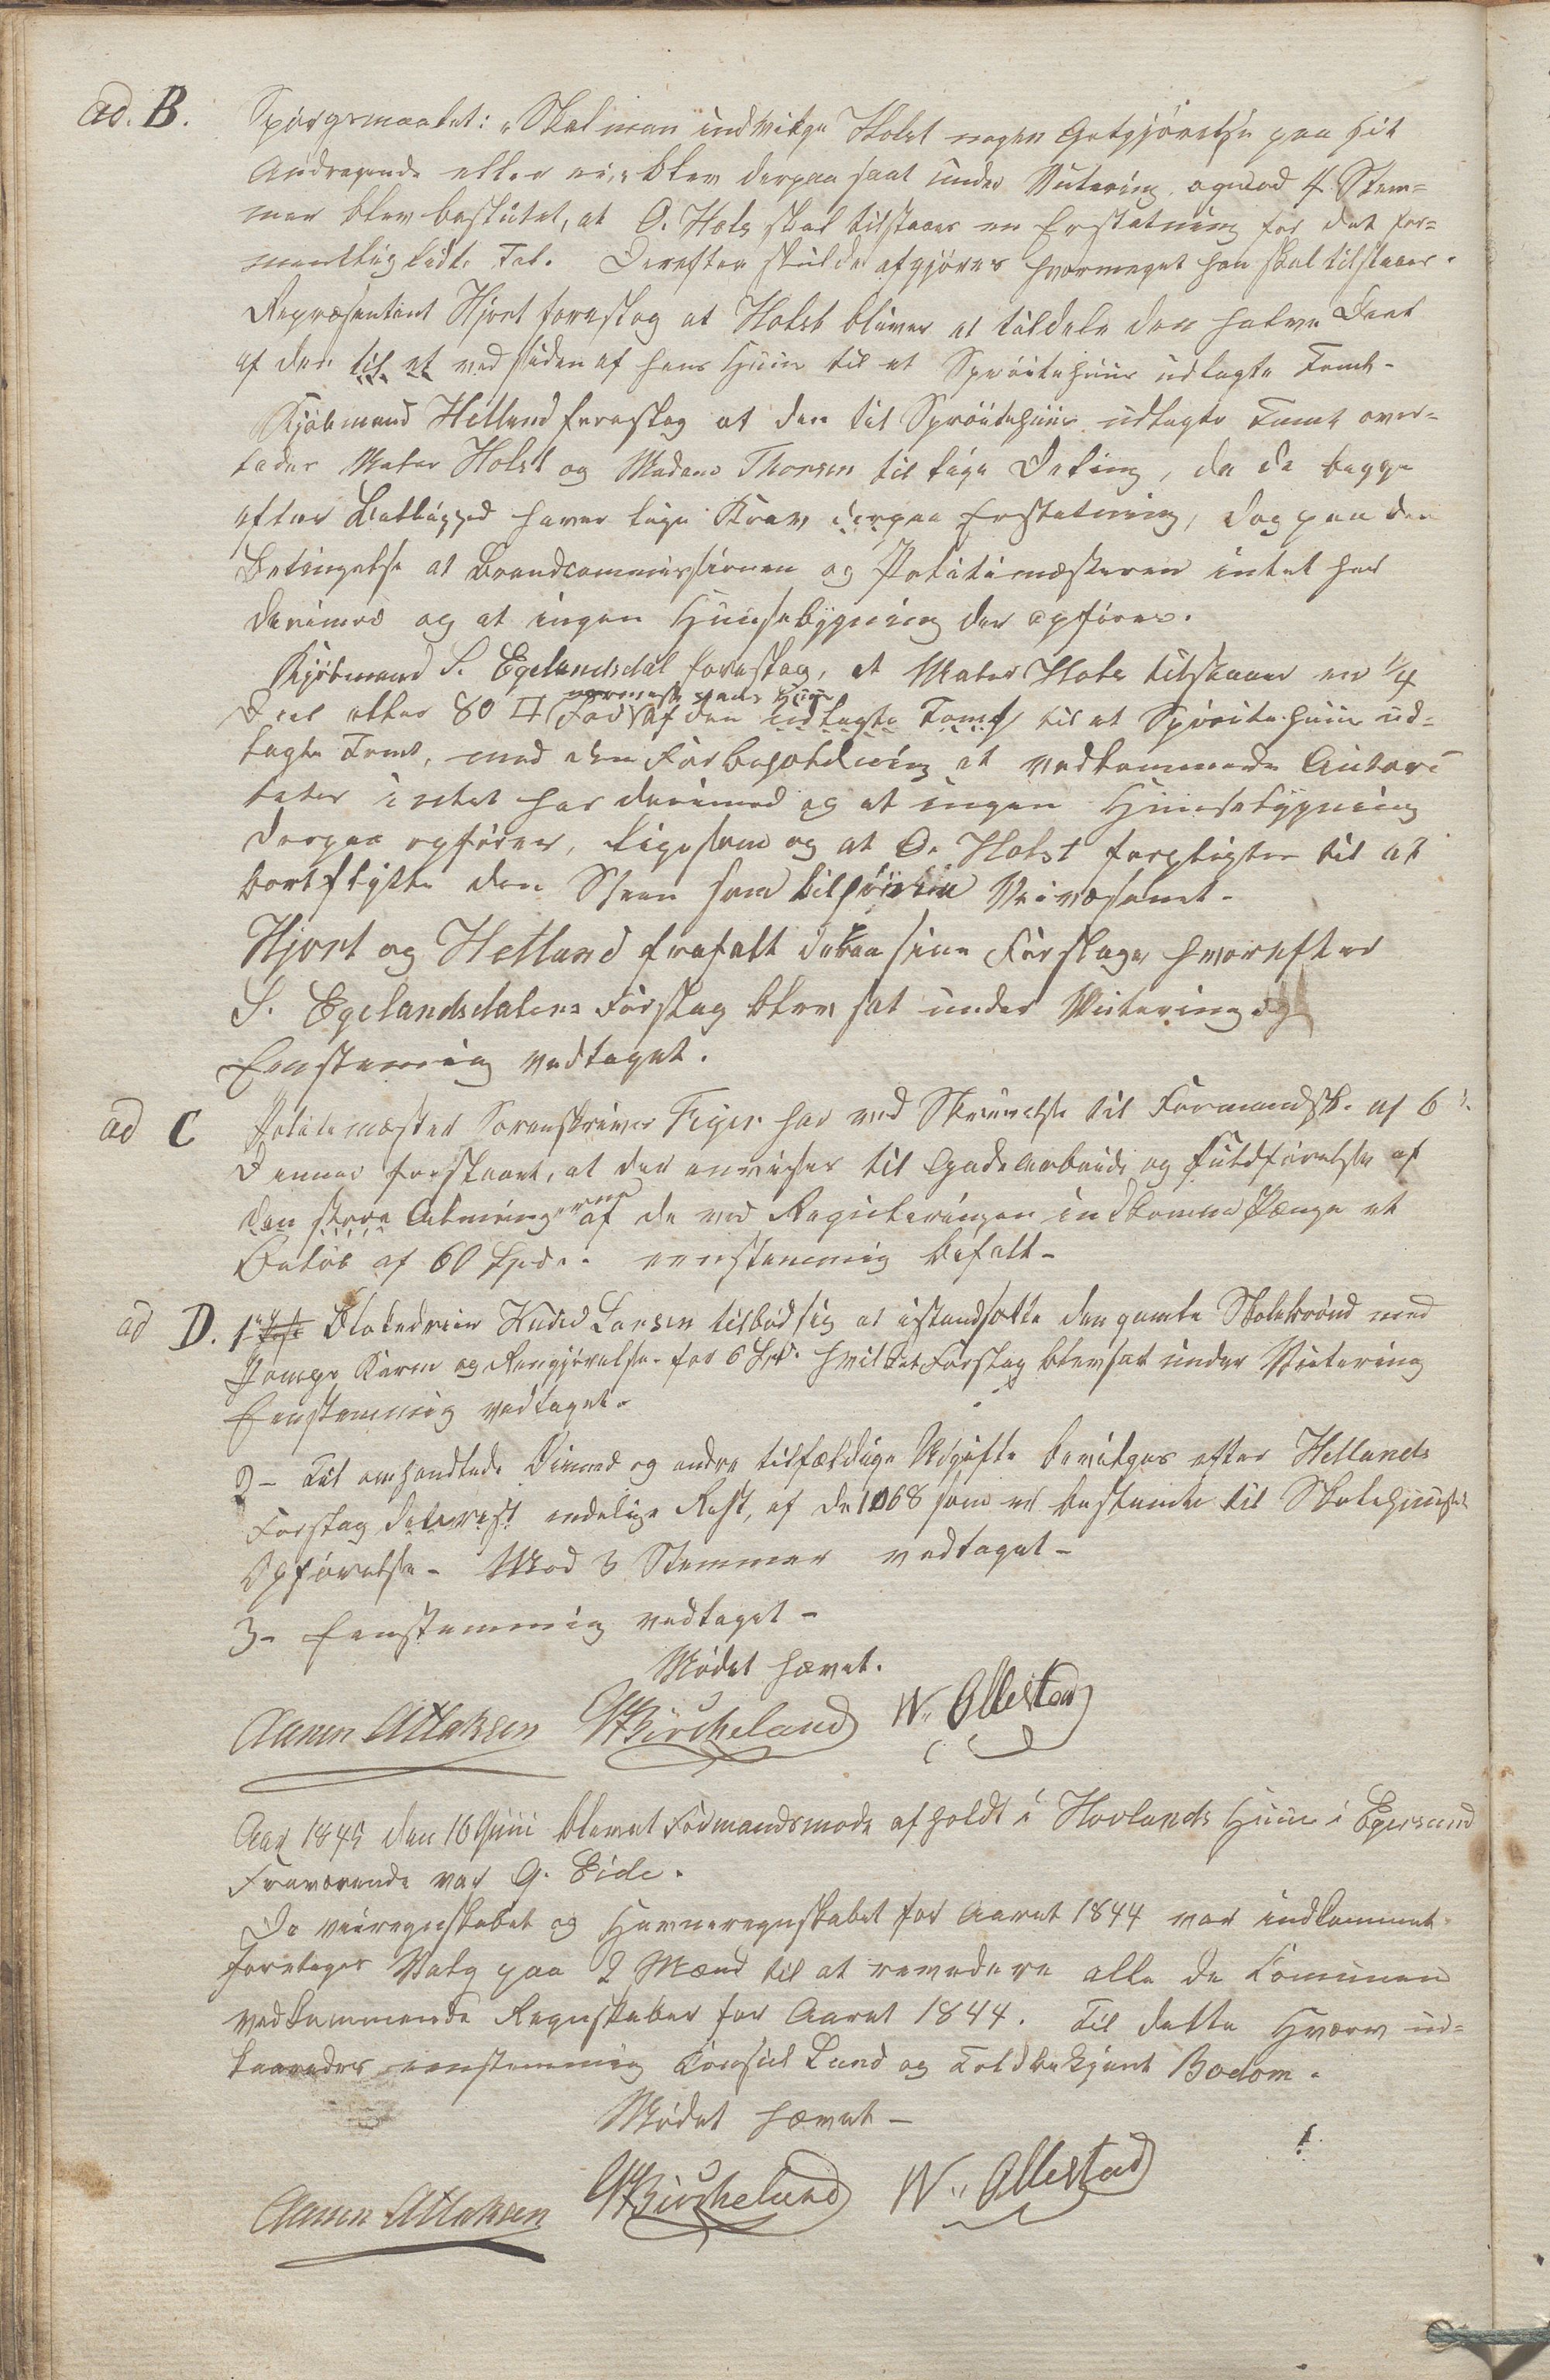 ad. B. Spørgsmaalet: "Skal man indvilge Holst nogen Godtgjørelse paa sit
Andragende eller ei," blev derpaa saat under Votering og mod 4 Stem=
mer blev besluttet, at O. Hols skal tilstaaes en Erstatning for det for=
mentlig lidte Tab. Derefter skulde afgjøres hvormeget han skal tilstaaes.
Repræsentant Hjort foreslog at Holst bliver at tildele den halve Deel
af den til et ved siden af hans Huus til et Sprøitehuus udlagte Tomt.
Kjøbmand Hetland foreslog at den til Sprøitehuus udlagte Tomt over=
lades Maler Holst og Madame Thorsen til lige Deling, da de begge
efter Beliggenhed haver lige Krav derpaa Erstatning, dog paa den
Betingelse at Brandcommissionen og Politimæsteren intet har
derimod og at ingen Huusebygning der opføres.
Kjøbmand S. Egelandsdal foreslog, at Maler Hols tilstaaes en 1/4
Deel eller 80 □ Fod nærmest hans Huus af den indlagte Tomt til et Sprøitehuus ud=
lagte Tomt, med den Forbeholdning at vedkommende Autori
teter intet har derimod og at ingen Huusebygning
derpaa opføres, ligesom og at O. Holst forpligtes til at
bortflytte den Steen som tilhører Veivæsenet.
Hjort og Hetland frafalt derpaa sine Forslage hvorefter
S. Egelandsdalens Forslag blev sat under Votering og
Eenstemmig vedtaget.
ad C Politimæster Sorenskriver Feyer har ved Skrivelse til Formandsk. af 6te
Dennes foreslaaet, at der anvises til Gadearbeide og Fuldførelse af
den store Almening af de ved Reguleringen indkomne Penge et
Beløb af 60 Spd. eenstemmig bifalt.
ad D. 1. Blokdreier Knud Larsen tilbød sig at istandsætte den gamle Skolebrønd med
Pompe Karm og Rengjørelse for 6 Spd. hvilket Forslag blev sat under Votering
Eenstemmig vedtaget.
2 - Til omhandlede Diined og andre tilfældige Udgifte bevilges efter Hetlands
Forslag den endelige Rest, af de 1068 som er bestemte til Skolehuusets
Opførelse. Mod 3 Stemmer vedtaget -
3 - Eenstemmig vedtaget -
Mødet hævet.
Aanen Atlaksen Birkeland W. Ollestad
Aar 1845 den 16 Juni blev et Formandsmøde afholdt i Hovlands Huus i Egersund
Fraværende var G. Eide.
Da veiregnskabet og Havneregnskabet for Aaret 1844 var indkommet
foretoges Valg paa 2 Mænd til at revedere alle de Comunen
vedkommende Regnskaber for Aaret 1844. Til dette Hværv ud=
kaaredes eenstemmig Consul Lund og Toldbetjent Bodom.
Mødet hævet -
Aanen Atlaksen Birkeland W. Ollestad